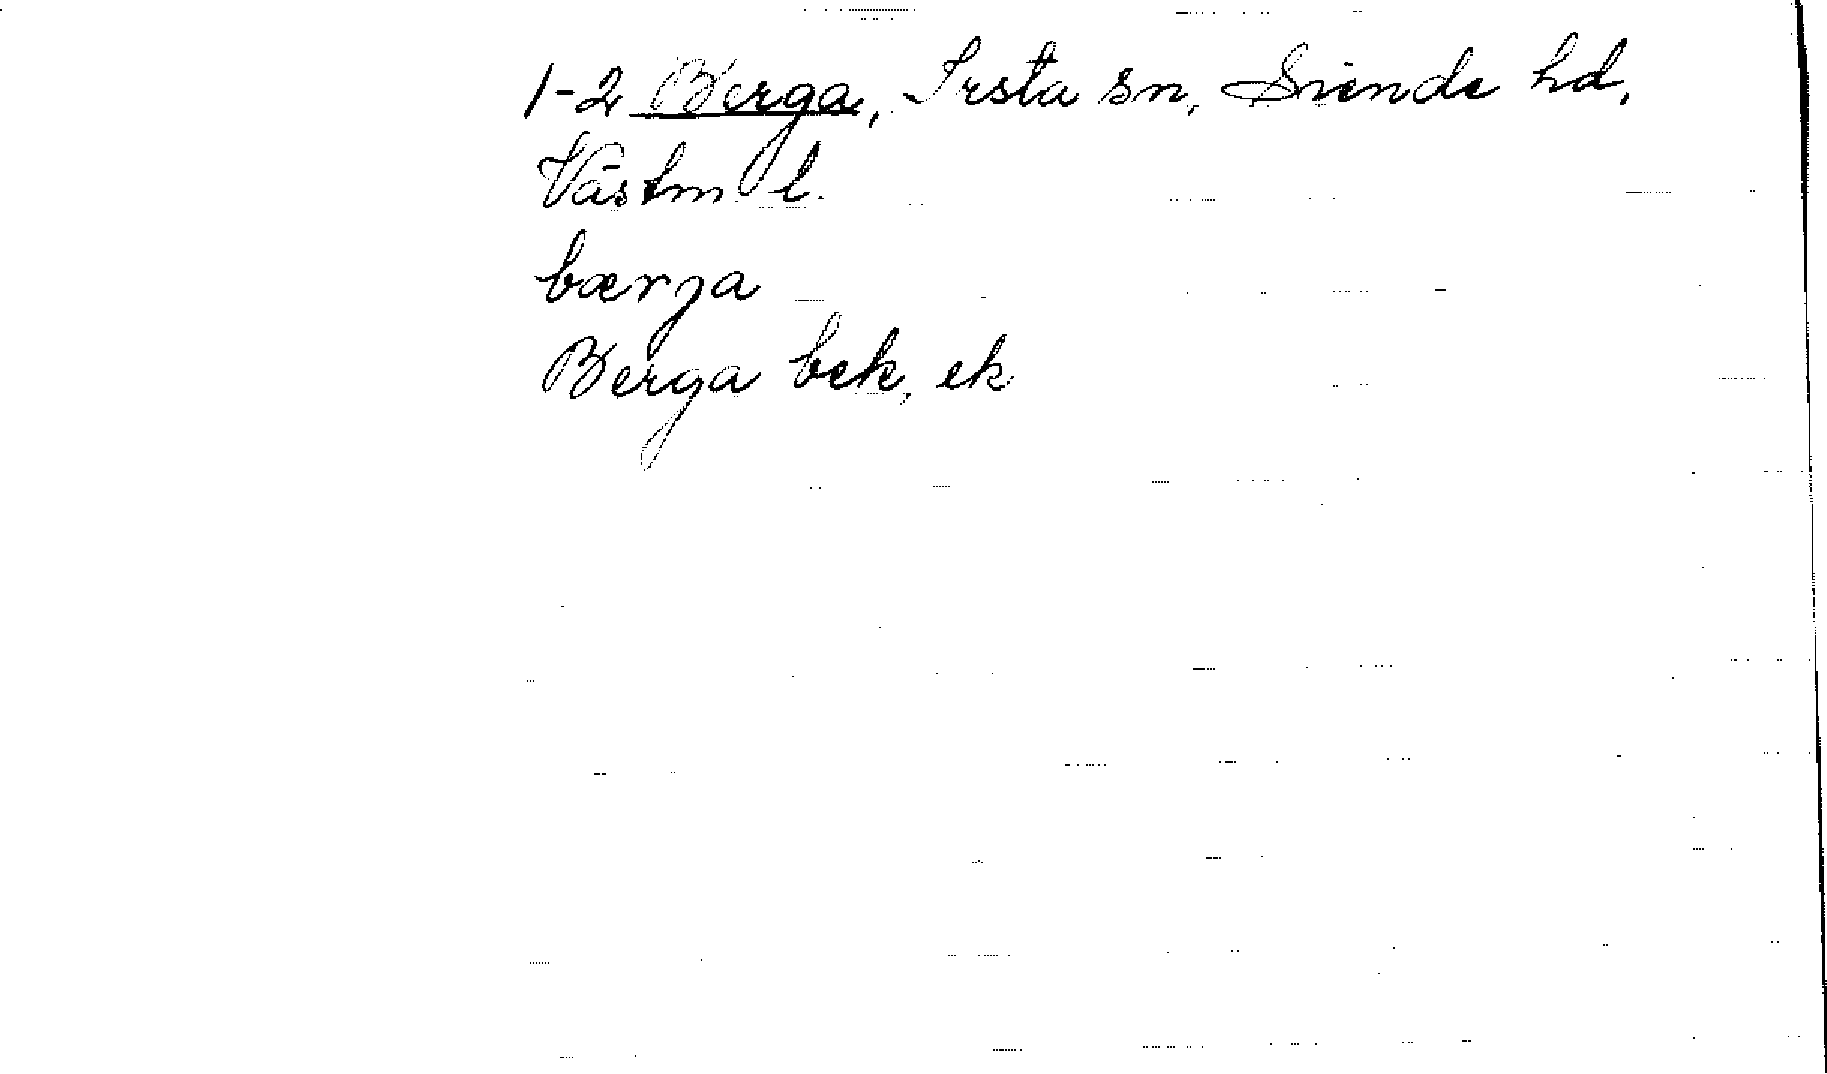 1-2 Berga, Irsta sn, Siende hd,
Västm l.
bærja
Berga bek, ek